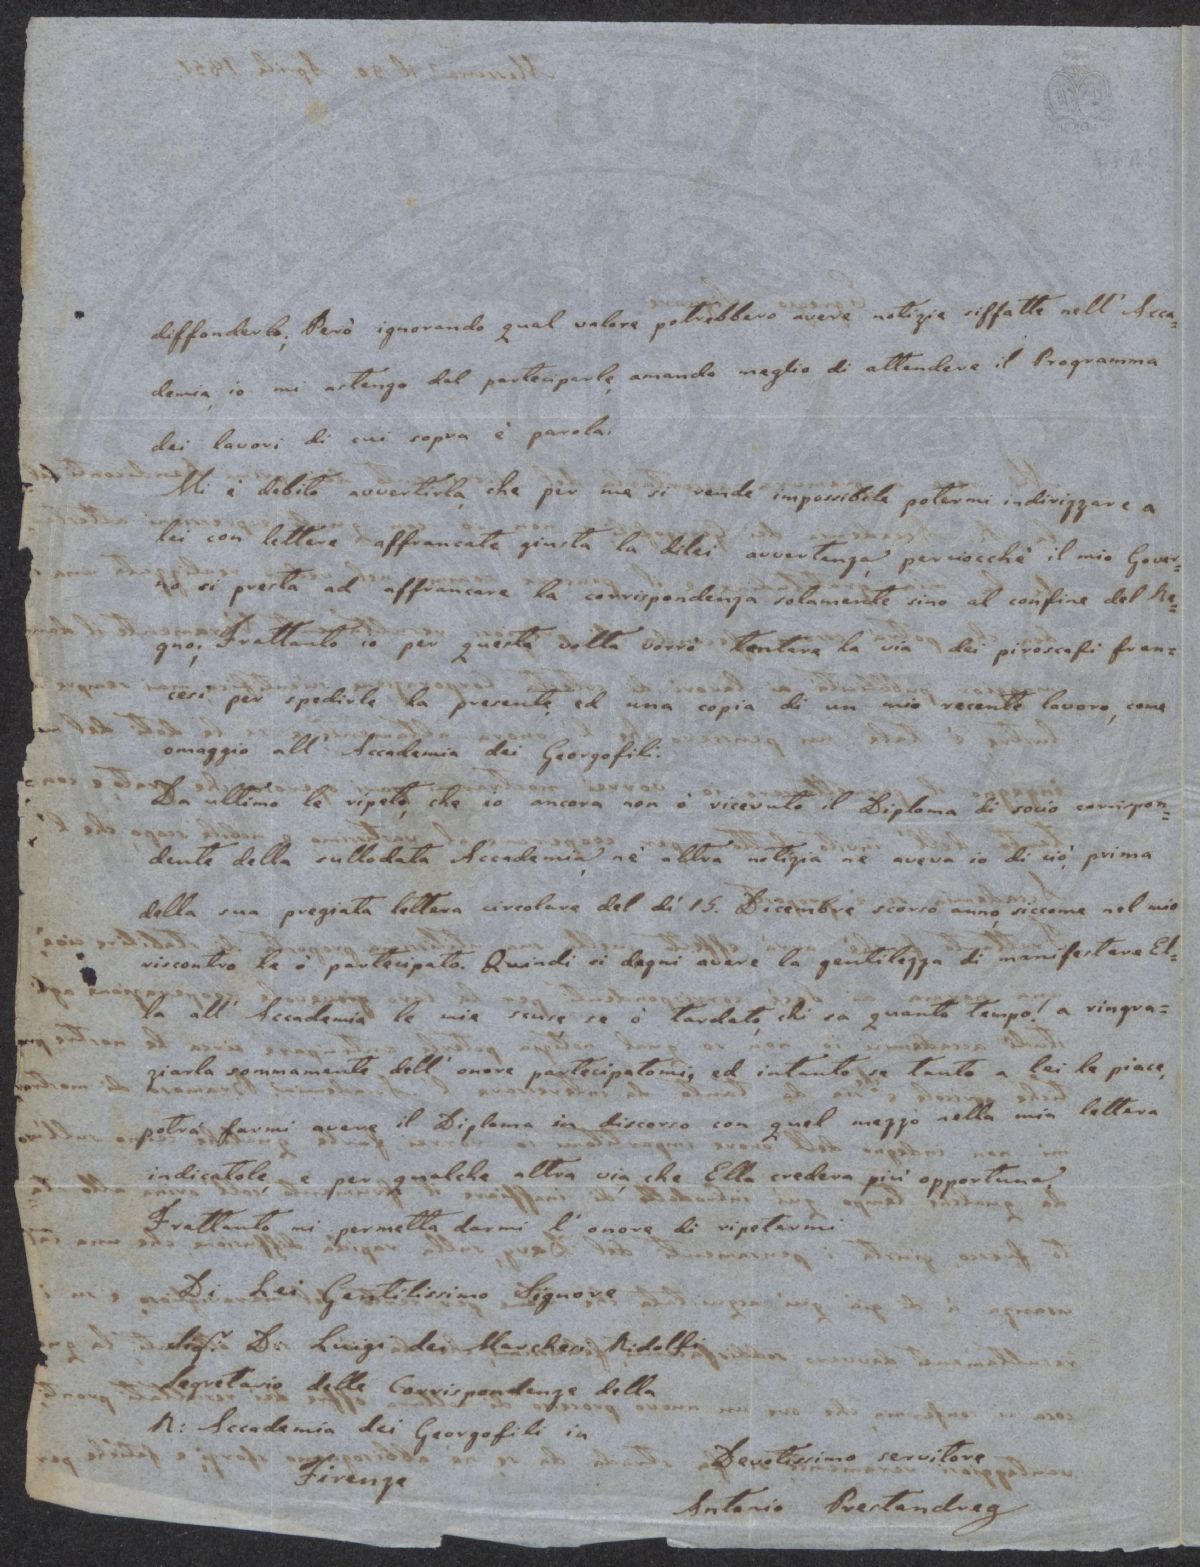 diffonderlo; Però ignorando qual valore potrebbero avere notizie siffatte nell' Acca=
demia, io mi astengo dal parteciparle, amando meglio di attendere il Programma
dei lavori di cui sopra è parola.
Mi è debito avvertirla, che per me si rende impossibile potermi indirizzare a
lei con lettere affrancate giusta la dilei avvertenza, perciocchè il mio Gover=
no si presta ad affrancare la corrispondenza solamente sino al confine del Re=
gno; Frattanto io per questa volta vorrò tentare la via dei piroscafi fran=
cesi per spedirle la presente, ed una copia di un mio recente lavoro, come
omaggio all' Accademia dei Georgofili.
Da ultimo le ripeto, che io ancora non ò ricevuto il Diploma di socio corrispon=
dente della sullodata Accademia, nè altra notizia ne aveva io di ciò, prima
della sua pregiata lettera circolare del dì 15. Dicembre scorso anno, siccome nel mio
riscontro le ò partecipato. Quindi si degni avere la gentilezza di manifestare El=
la all' Accademia le mie scuse se ò tardato, chi sa quanto tempo! a ringra=
ziarla sommamente dell' onore partecipatomi; ed intanto se tanto a lei le piace,
potrà farmi avere il Diploma in discorso con quel mezzo nella mia lettera
indicatole, e per qualche altra via, che Ella crederà più opportuna
Frattanto mi permetta darmi l' onore di ripetermi
Di Lei Gentilissimo Signore
Sigr. D: Luigi dei Marchesi Ridolfi
Segretario delle Corrispondenze della
R: Accademia dei Georgofili in
Firenze
Devotissimo servitore
Antonio Prestandrea